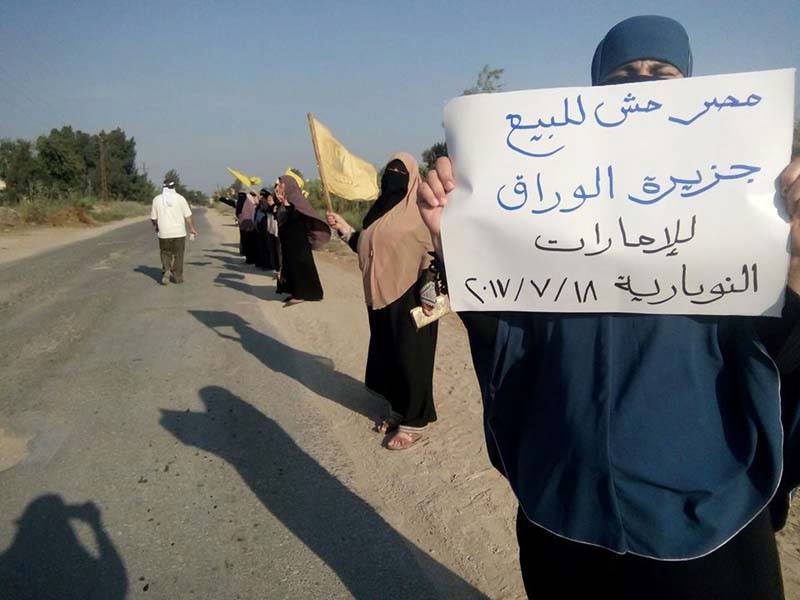 مصر مش للبيع
جزيرة الوراق
للإمارات
النوبارية ٢٠١٧/٧/١٨